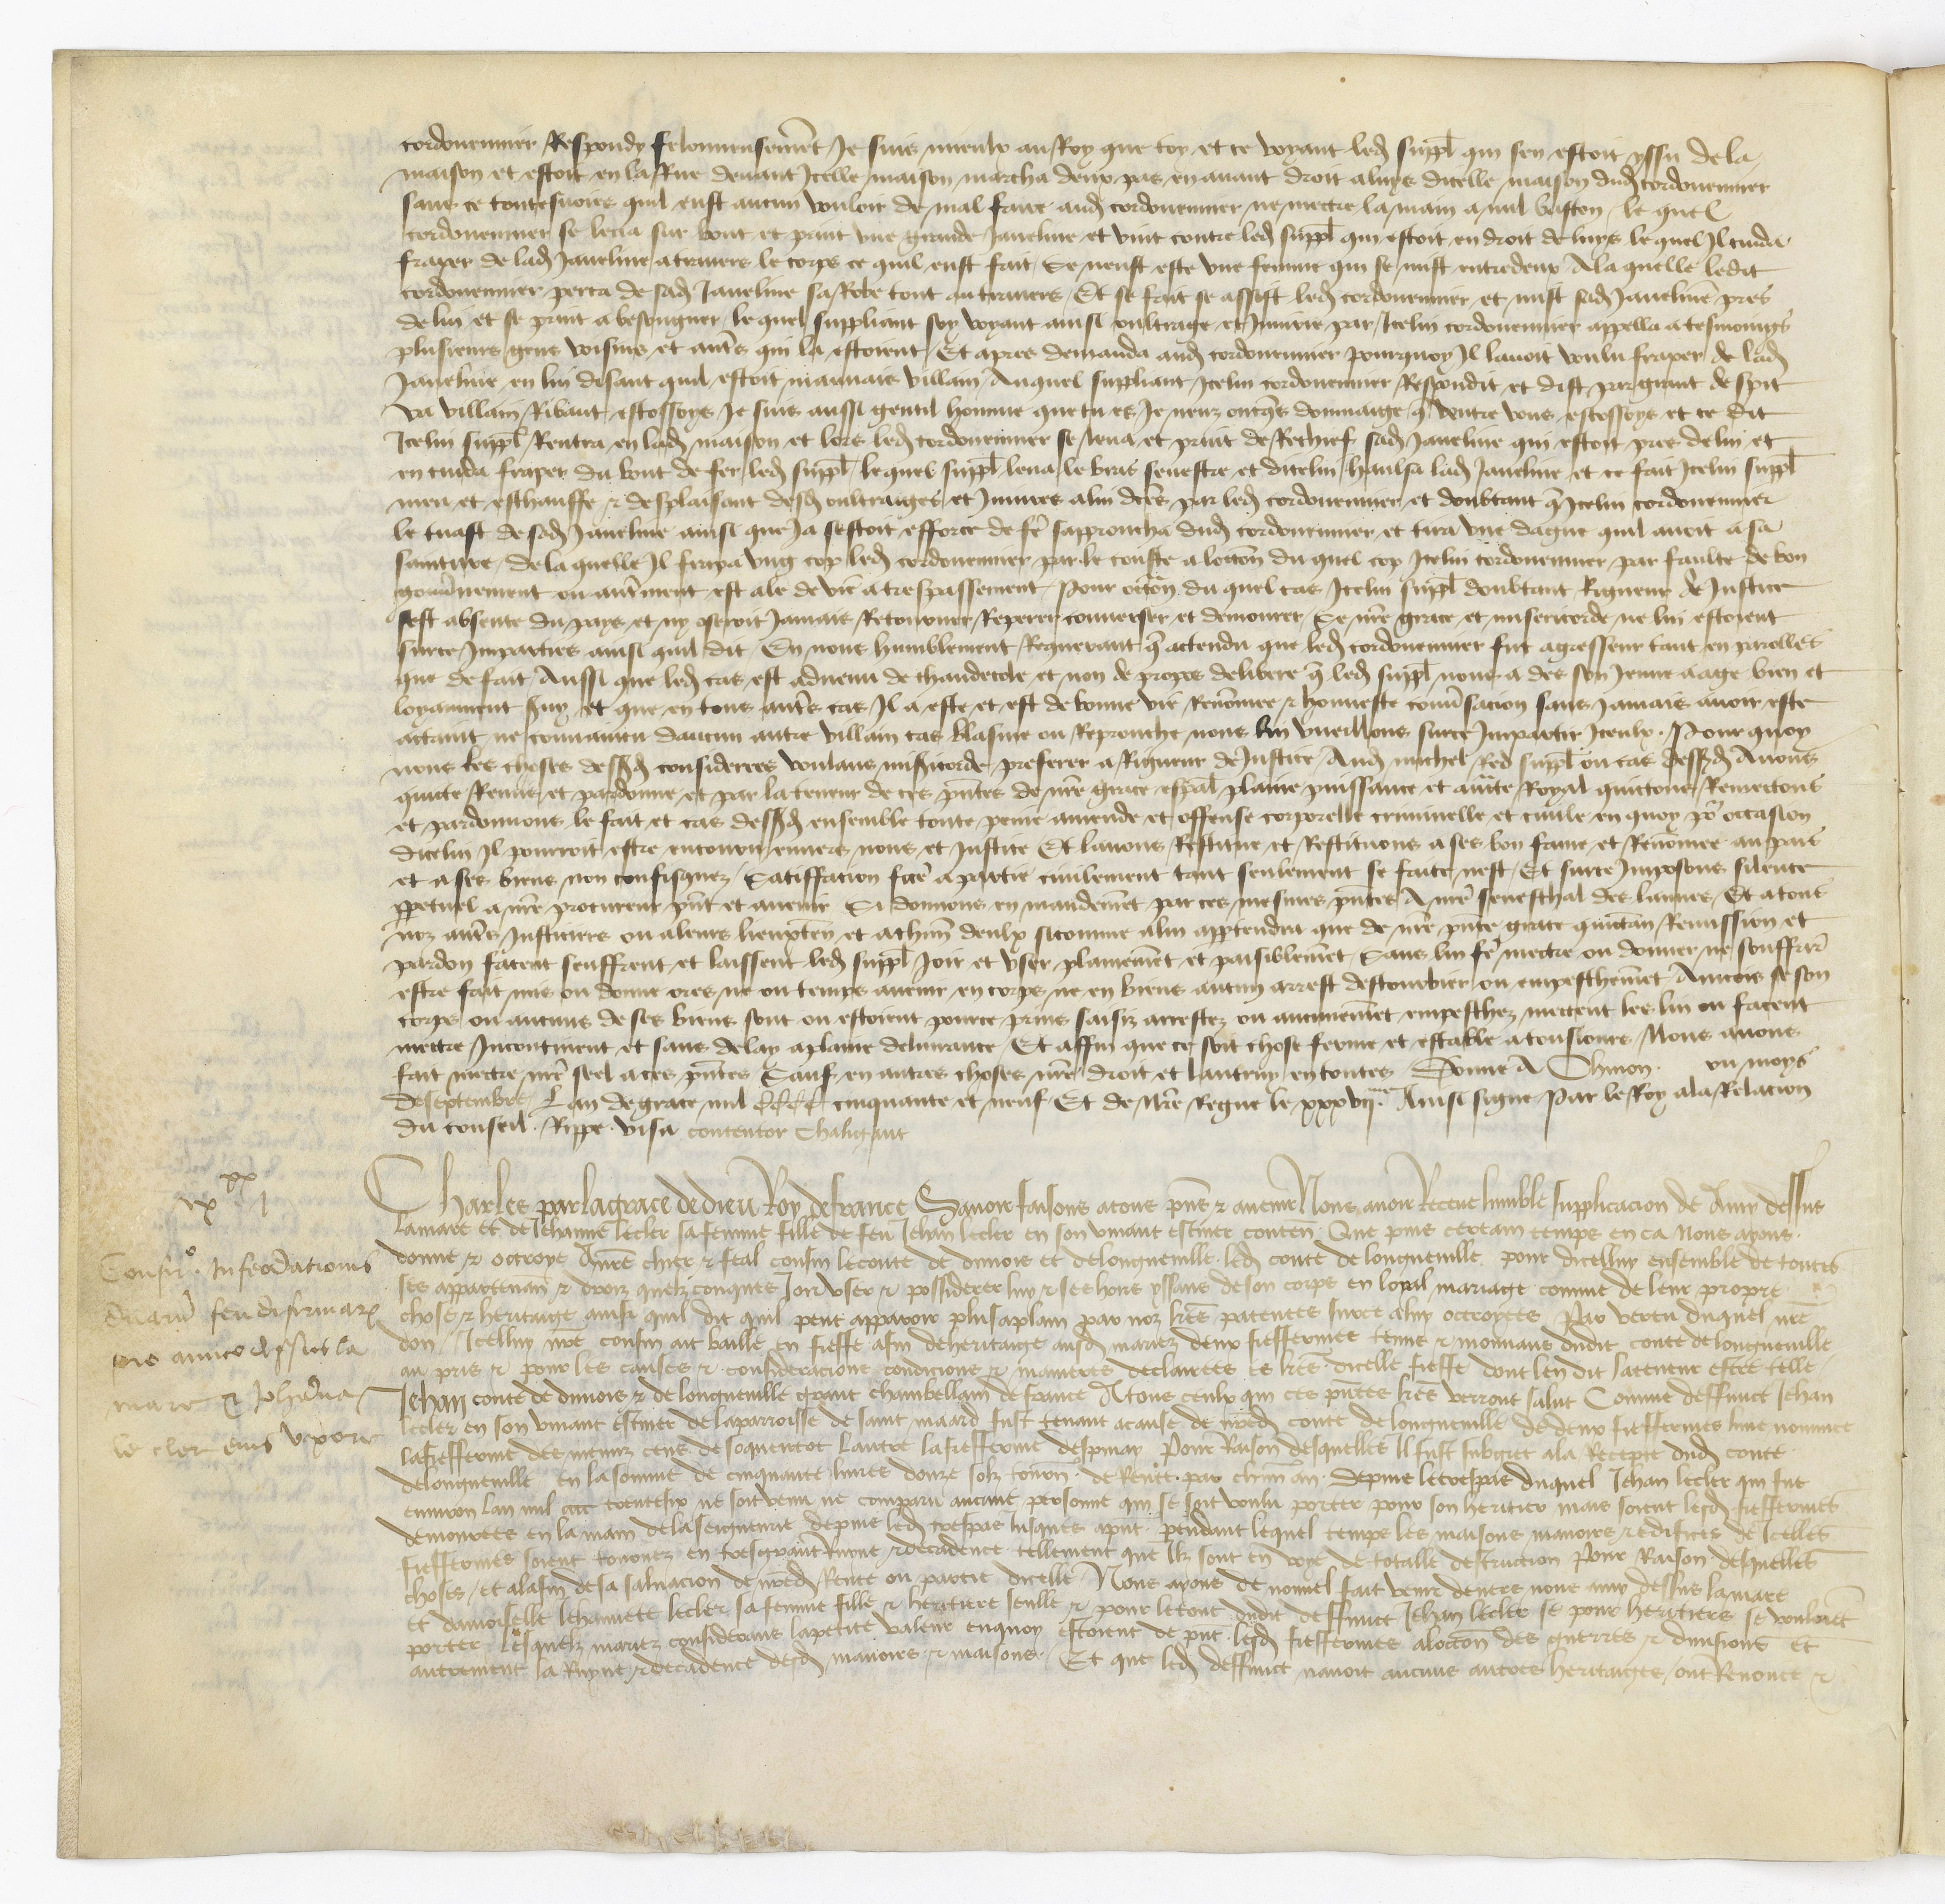 cordouennier Respondy felonneusement Je suis mieulx au Roy que toy et ce voyant led suppl qui sen estoit yssu de la
maison et estoit en la Rue devant Icelle maison marcha deux pas en avant droit a luys dicelle maison dud cordouennier
sans ce toutesvoies quil eust aucun vouloir de mal faire aud cordouennier ne mectre la main a nul baston le quel
cordouennier se leva sur bout et print une grande Javeline et vint contre led suppl qui estoit en droit de luys lequel Il cuida
fraper de lad Javeline atravers le corps ce quil eust fait Se neust este une femme qui se mist entredeux A la quelle ledit
cordouennier perca de sad Javeline sa Robe tout au travers Et se fait se assist led cordouennier et mist sad Javeline pres
de lui et se print a besongner lequel suppliant soy voyant ainsi oultrage et Injurie par Icelui cordouennier appella a tesmoings
plusieurs gens voisins et autres qui la estoient Et apres demanda aud cordouennier pourquoy Il lavoit voulu fraper de lad
Javeline en lui disant quil estoit mauvais villain Auquel suppliant Icelui cordouennier Respondit et dist par grant despit
va villain Ribaut estossoys Je suis aussi gentil homme que tu es Je neuz oncques dommaige que dentre vous estossoys et ce dit
Icelui suppl Rentra en lad maison et lors led cordouennier se leva et print de Rechief sad Javeline qui estoit pres de lui et
en cuida fraper du bout de fer led suppl lequel suppl leva le bras senestre et dicelui haulsa lad Javeline et ce fait Icelui suppl
meu et eschauffe & desplaisant desd oultraiges et Injures a lui dictes par led cordouennier et doubtant que Icelui cordouennier
le tuast de sad Javeline ainsi que Ja sestoit efforce de fe sapproucha dud cordouennier et tira une dague quil avoit a sa
sainture de la quelle Il frapa ung cop led cordouennier par le couste a loccon du quel cop Icelui cordouennier par faulte de bon
gouvernement ou autrement est ale de vie a trespassement Pour occon du quel cas Icelui suppl doubtant Rigueur de Justice
sest absente du pays et ny oseroit Jamais Retourner Reperer converser et demourer Se nre grace et misericorde ne lui estoient
surce Imparties ainsi quil dit En nous humblement Requerant que actendu que led cordouennier fut agresseur tant en parolles
que de fait Aussi que led cas est advenu de chaudecole et non de propos delibere que led suppl nous a des son Jeune aage bien et
loyaument servy et que en tous autres cas Il a este et est de bonne vie Renommee & honneste conversacion sans Jamais avoir este
actaint ne convaincu daucun autre villain cas blasme ou Reprouche nous lui vueillons surce Impartir Icelle Pour quoy
nous les choses dessusd considerees voulans misericorde preferer a Rigueur de Justice Aud michel Red suppl ou cas dessusd Avons
quicte Remis et pardonne et par la teneur de ces pntes de nre grace espal plaine puissance et aucte Royal quictons Remectons
et pardonnons le fait et cas dessusd ensemble toute peine amende et offense corporelle criminelle et civile en quoy pour occasion
dicelui Il pourroit estre encouru envers nous et Justice Et lavons Restitue et Restituons a ses bon fame et Renommee au pais
et a ses biens non confisquez Satiffacion faicte a partie civilement tant seulement se faicte nest Et surce Imposons silence
perpetuel a nre procureur pnt et avenir Si donnons en mandement par ces mesmes pntes A nre seneschal des lannes Et a tous
noz autres Justiciers ou a leurs lieuxten et a chun deulx sicomme a lui appartendra que de nre pnte grace quictan Remission et
pardon facent seuffrent et laissent led suppl Joir et user plainement et paisiblement Sans lui fe mectre ou donner ne souffrir
estre fait mis ou donne ores ne ou temps avenir en corps ne en biens aucun arrest destourbier ou empeschement Aincois se son
corps ou aucuns de ses biens sont ou estoient pource prins saisiz arrestez ou aucunement empeschez mectent les lui ou facent
mectre Incontinent et sans delay a plaine delivrance Et affin que ce soit chose ferme et estable a tousjours Nous avons
fait mectre nre seel a ces pntes Sauf en autres choses nre droit et lautruy en toutes Donne A Chinon ou moys
de septembre Lan de grace mil cccc cinquante et neuf Et de Nre Regne le xxxvij me Ainsi signe Par le Roy a la Relacion
du conseil Rippe visa contentor Chaligaut
ix xx j
Charles par la grace de dieu Roy de france Savoir faisons a tous pns & avenir Nous avoir Receue humble supplicacion de Amy dessus
lamare et de Jehanne lecler sa femme fille de feu Jehan lecler en son vivant escuier conten Que puis certain temps en ca Nous ayons
Confirmo Infeodationis
donne & octroye A nre chier & feal cousin le conte de dunois et de longueville led conte de longueville pour dicelluy ensemble de toutes
ses appartenan & droiz quelzconques Joir user & possiderer luy & ses hoirs yssans de son corps en loyal mariage comme de leur propre
duarum feudifirmar
chose & heritaige ainsi quil dit quil peut apparoir plus a plain par noz lres patentes surce a luy octroyees Par vertu duquel nre
don Icelluy nre cousin ait baille en fieffe a fin de heritaige ausd mariez deux fieffermes tenue & mouvans dudit conte de longueville
pro amico dessus la
au pris & pour les causes & consideracions condicions & manieres declairees es lres dicelle fieffe dont len dit la teneur estre telle
mare & Johanna
Jehan conte de dunois & de longueville grant chambellam de france A tous ceulx qui ces pntes lres verront salut Comme deffunct Jehan
lecler en son vivant escuier de la parroisse de saint maard fust tenant a cause de nred conte de longueville de deux fieffermes lune nommee
le cler eius uxore
la fiefferme des menuz cens de soquentot lautre la fiefferme despinay Pour Raison desquelles Il fust subgiet a la Recepte dud conte
de longueville en la somme de cinquante livres douze solz tourn de Rente par chun an Depuis le trespas duquel Jehan lecler qui fut
environ lan mil cccc trentesix ne soit venu ne comparu aucune personne qui se soit voulu porter pour son heritier mais soient lesd fieffermes
demourees en la main de la seigneurie depuis led trespas jusques apnt pendant lequel temps les maisons manoirs & edifices de Icelles
fieffermes soient tournez en tresgrant Ruyne & decadence tellement que Ilz sont en voye de totalle destruction Pour Raison desquelles
choses et a la fin de la salvacion de nred Rente ou partie dicelle Nous ayons de nouvel fait venir devers nous amy dessus lamare
et damoiselle Jehannete lecler sa femme fille & heritiere seulle & pour le tout dudit deffunct Jehan lecler se pour heritiers se vouloient
porter Lesquelz mariez considerans la petite valeur enquoy estoient de pnt lesd fieffermes a loccon des guerres & divisions et
autrement la Ruyne & decadence desd manoirs & maisons Et que led deffunct navoit aucuns autres heritaiges ont Renonce &